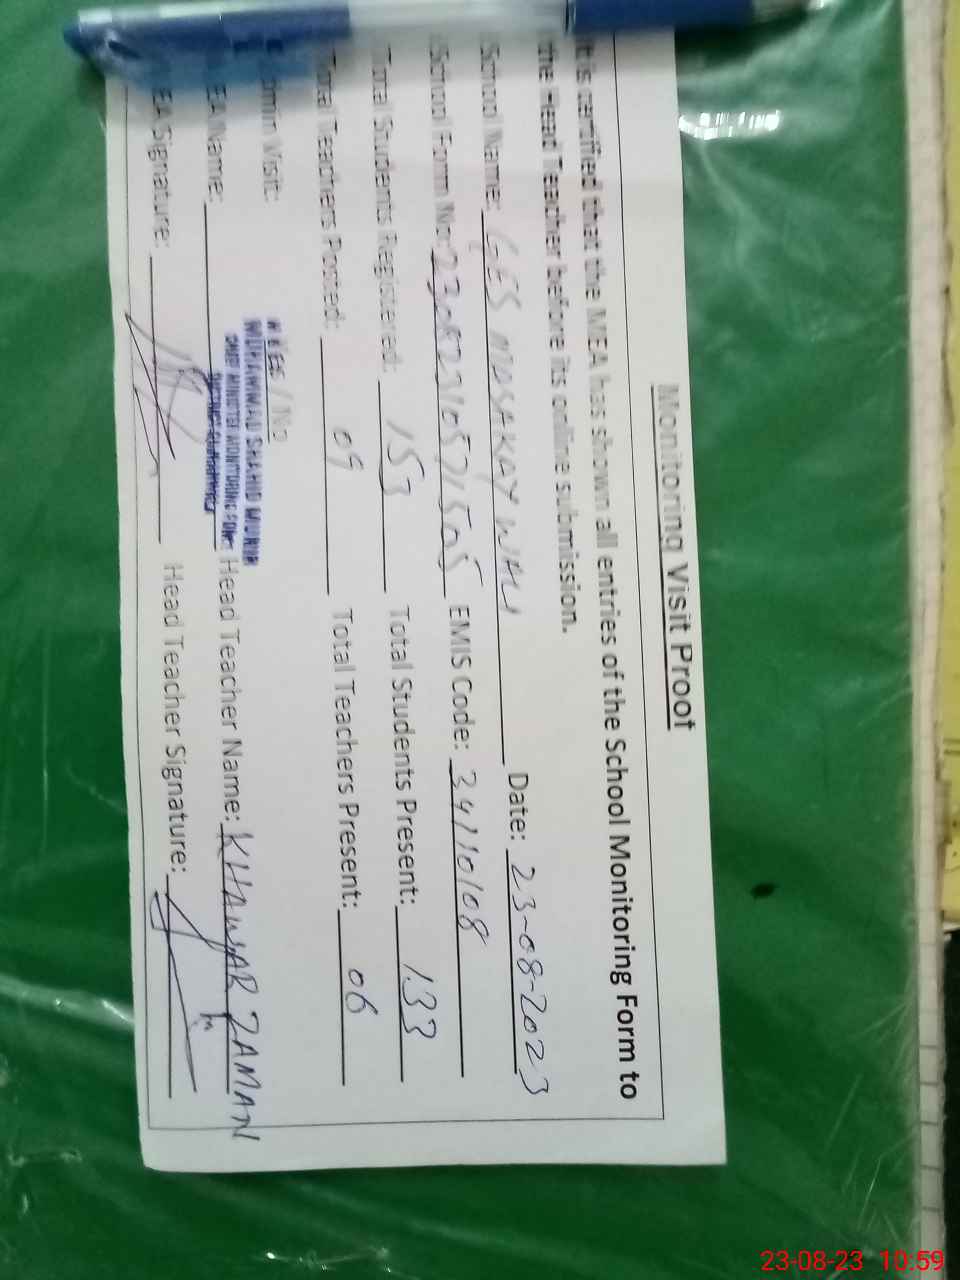 Monitoring Visit Proof
It is certified that the MEA has shown all entries of the School Monitoring Form to
the Head Teacher before its online submission.
School Name: GES Date: 23-08-2023
School Form No: EMIS Code: 34110108
Total Students Registered: 153 Total Students Present: 133
Total Teachers Posted: 09 Total Teachers Present: 06
Admin Visit: Yes / No
MUHAMMAD SHAHID MUNIR
EA Name: Head Teacher Name: KHAWAR ZAMAN
EA Signature: Head Teacher Signature:
23-08-23 10:59